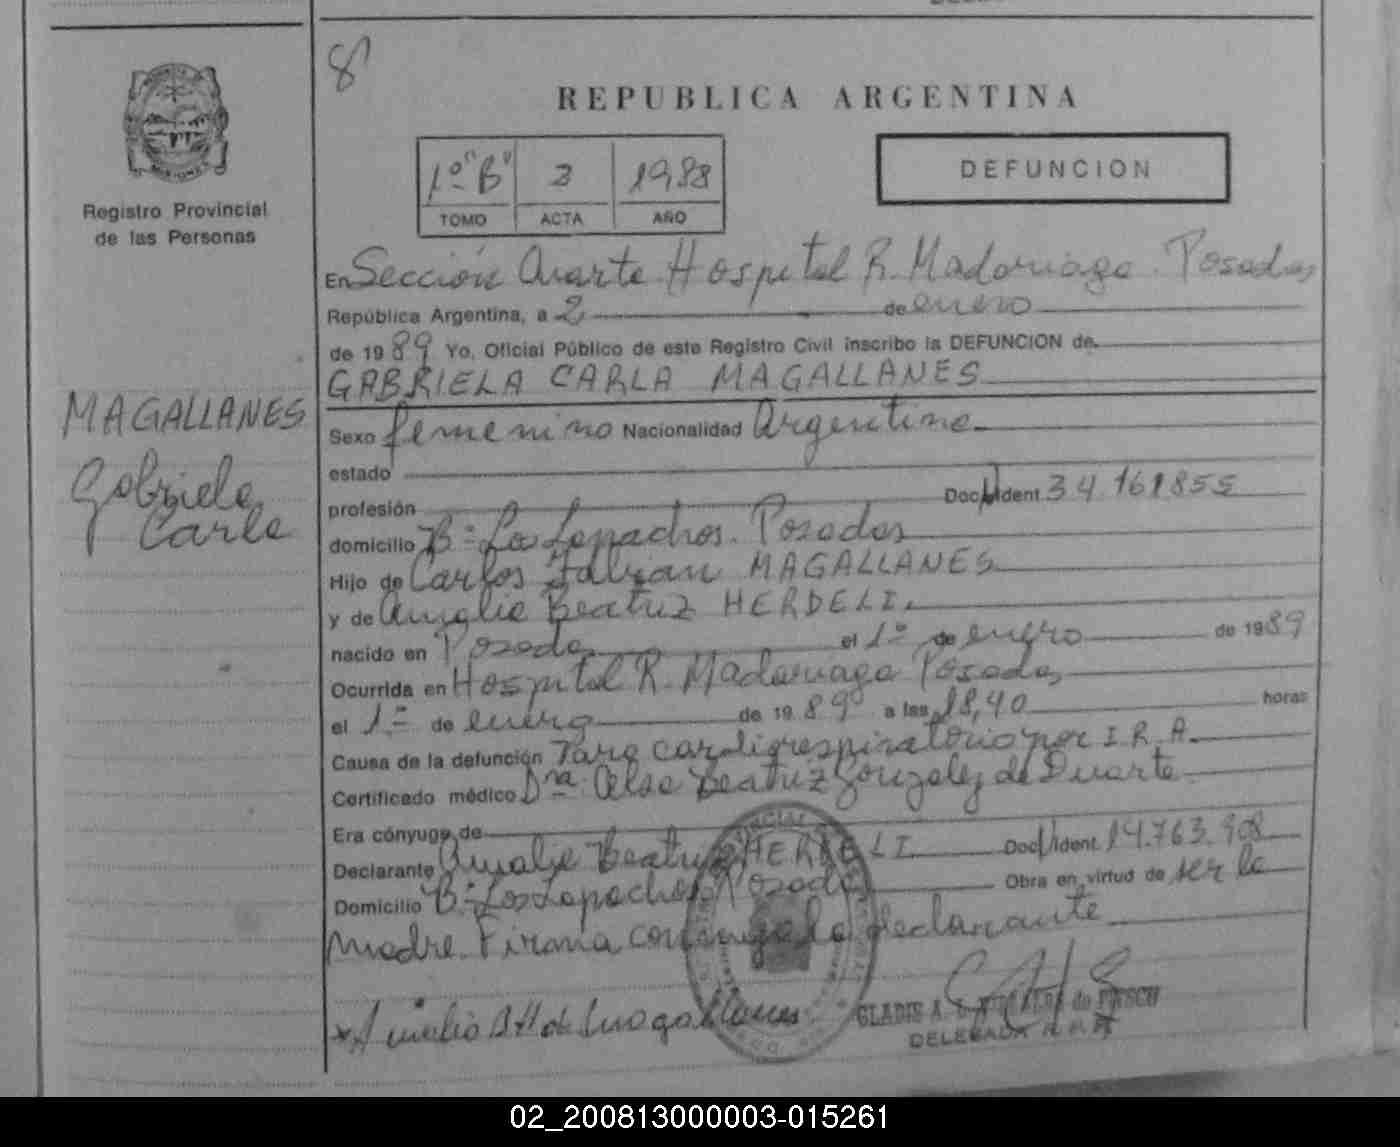 8
REPUBLICA ARGENTINA
MISIONES
1º "B" 3 1988
TOMO ACTA AÑO
DEFUNCION
Registro Provincial
de las Personas
En Sección Cuarta Hospital R. Madariaga. Posadas
República Argentina, a 2 de enero
de 1989 Yo, Oficial Público de este Registro Civil inscribo la DEFUNCION de
GABRIELA CARLA MAGALLANES
MAGALLANES
Gabriela
Carla
Sexo femenino Nacionalidad Argentina
estado
profesión Doc. Ident 34.161855
domicilio Bº Los Lapachos. Posadas
Hijo de Carlos Fabian MAGALLANES
y de Amalia Beatriz HERDELI.
nacido en Posadas el 1º de enero de 1989
Ocurrida en Hospital R. Madariaga Posadas
el 1º de enero de 1989 a las 18,40 horas
Causa de la defunción Paro cardiorespiratorio por I.R.A.
Certificado médico Dra. Celsa Beatriz Gonzalez de Duarte
Era cónyuge de
Declarante Amalia Beatriz HERDELI Doc. Ident. 14.763.908
Domicilio Bº Los Lapachos Posadas Obra en virtud de ser la
madre. Firma conmigo la declarante
Amalia B H de Magallanes
GLADIS A. de
DELEGADA R.P.P.
02_200813000003-015261